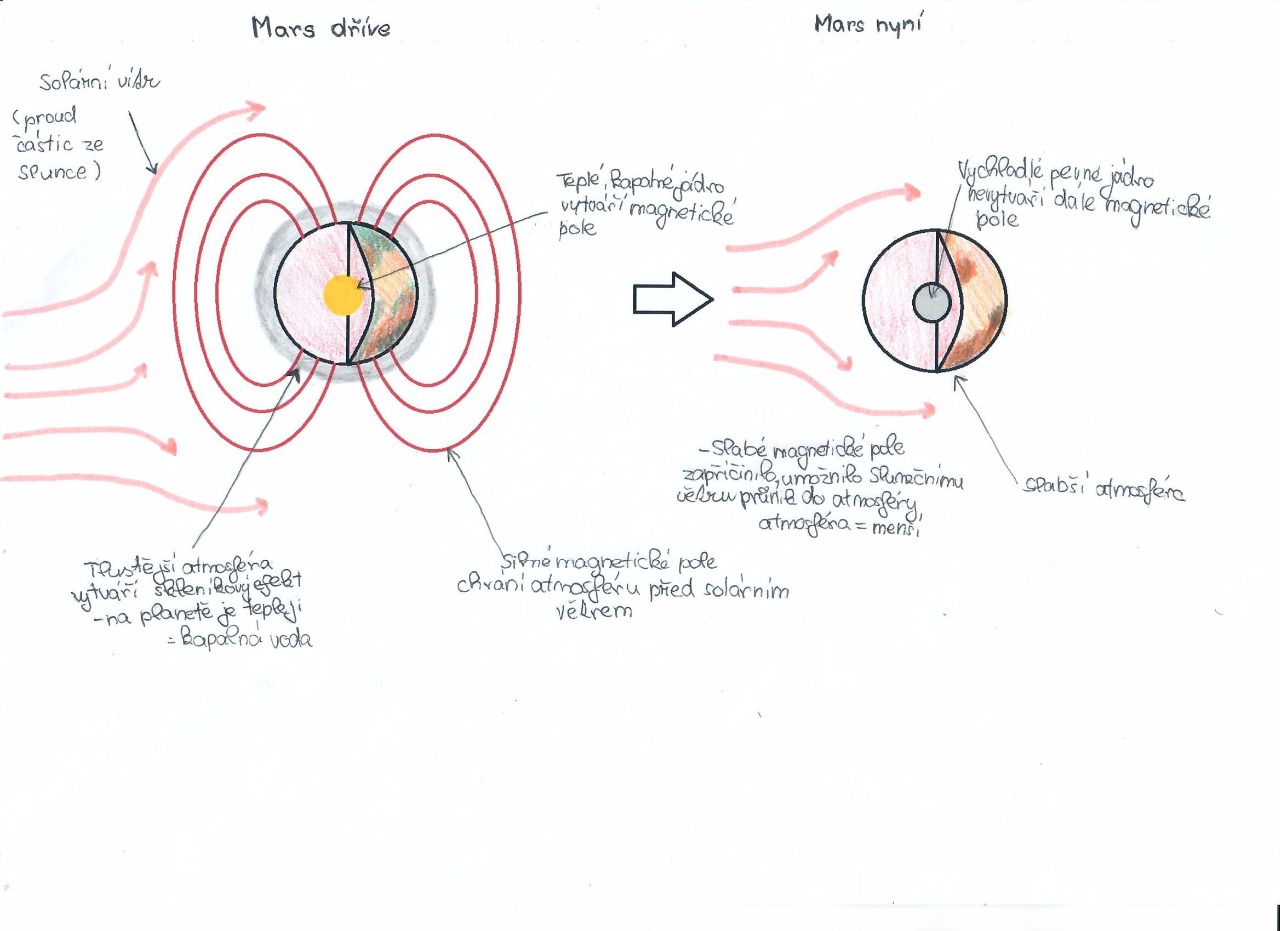 Mars dříve
Mars nyní
Solární vítr
(proud
částic ze
slunce)
Teplé, kapalné jádro
vytváří magnetické
pole
Vychladlé pevné jádro
nevytváří dále magnetické
pole
Tlustější atmosféra
vytváří skleníkový efekt
-na planetě je tepleji
= kapalná voda
Silné magnetické pole
chrání atmosféru před solárním
větrem
-Slabé magnetické pole
zapříčinilo, umožnilo slunečnímu
větru průnik do atmosféry,
atmosféra = menší
slabší atmosféra